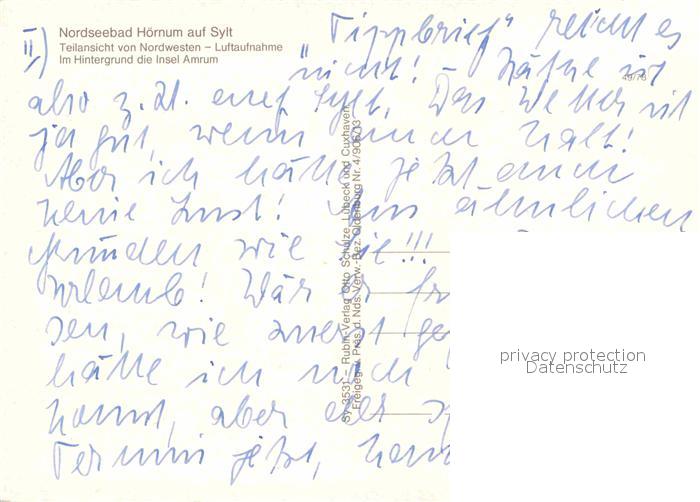 Nordseebad Hörnum auf Sylt
Teilansicht von Nordwesten – Luftaufnahme
Im Hintergrund die Insel Amrum
II)
"Tippbrief" reicht es
nicht! – Käthe ist
also z. Zt. auf Sylt. Das Wetter ist
ja gut, wenn auch kalt!
Aber ich hätte jetzt auch
keine Lust! Aus ähnlichen
Gründen wie Sie!!!
Urlaub! Wär er
sen, wie zuerst
hätte ich noch
konnt, aber der
Termin jetzt,
49/76
Sy 3531 – Rubin-Verlag Otto Schulze, Lübeck und Cuxhaven
Freigeg. v. Präs. d. Nds. Verw.-Bez. Oldenburg Nr. 4/906/13
privacy protection
Datenschutz